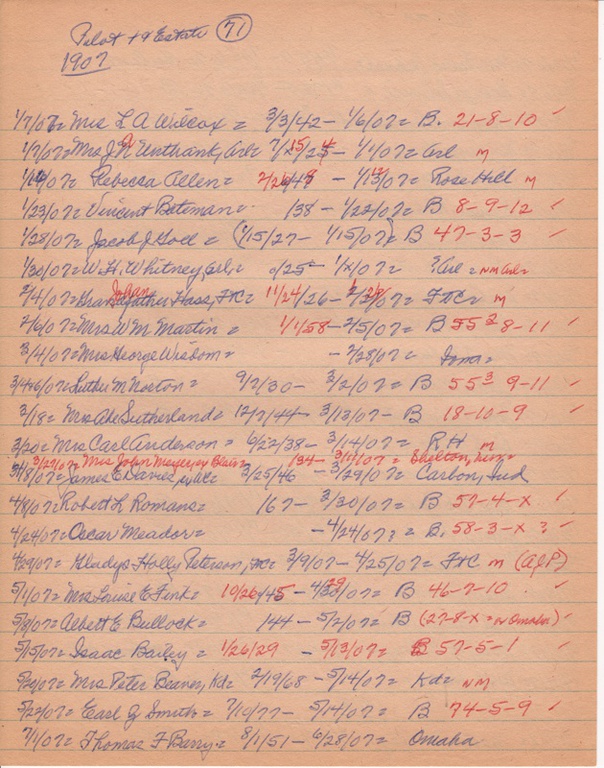 Pilot + Estate 71
1907
1/7/07= Mrs L A Wilcox = 3/3/42 - 1/6/07= B. 21-8-10 ✓
1/7/07= Mrs J Unthank, Arl= - 1/1/07= Arl m
Rebecca Allen= Rose Hill m
1/23/07= Vincent Bateman= 138 - 1/22/07= B 8-9-12 ✓
1/28/07= Jacob J Goll = (1/15/27 - 1/15/07) B 47-3-3 ✓
1/30/07= W. H. Whitney, Arl,= 1/x/07= ? Arl = NM Arl=
2/4/07= Hass, FTC= 11/24/26 - FTC= m
2/6/07= Mrs W M Martin = 1/1/58 - 2/5/07= B 55 2 8-11 ✓
3/4/07= Mrs George Wisdom= - 2/28/07=
Luther M Norton= 9/2/30 - 3/2/07= B 55 3 9-11 ✓
3/18= Mrs Abe Sutherland= 12/7/44 - 3/13/07- B 18-10-9 ✓
3/20= Mrs Carl Anderson = 6/22/38 - 3/14/07= R H m
3/27/07= Mrs John Meyer, Blair= 134 -
James E Davies, 3/25/46 - 3/29/07= Carbon, Ind
4/8/07= Robert L Romans= 167 - 3/30/07= B 57-4-x ✓
4/24/07= Oscar Meador= - 4/24/07? = B. 58-3-x ? ✓
4/29/07= Gladys Holly Peterson, 3/9/07 - 4/25/07= FTC m (AJP)
5/1/07= Mrs Louise E Fink= 10/26/45 - B 46-7-10 ✓
5/9/07= Albert E Bullock= 144 - 5/2/07= B (27-8-x = Omaha) ✓
5/15/07= Isaac Bailey = 1/26/29 - 5/13/07= B 57-5-1 ✓
5/20/07= Mrs Peter Beaver, Kd= 2/19/68 - 5/14/07= Kd= NM
5/27/07= Earl J Smith= 7/10/77 - 5/14/07= B 74-5-9 ✓
7/1/07= Thomas F Barry= 8/1/51 - 6/28/07= Omaha